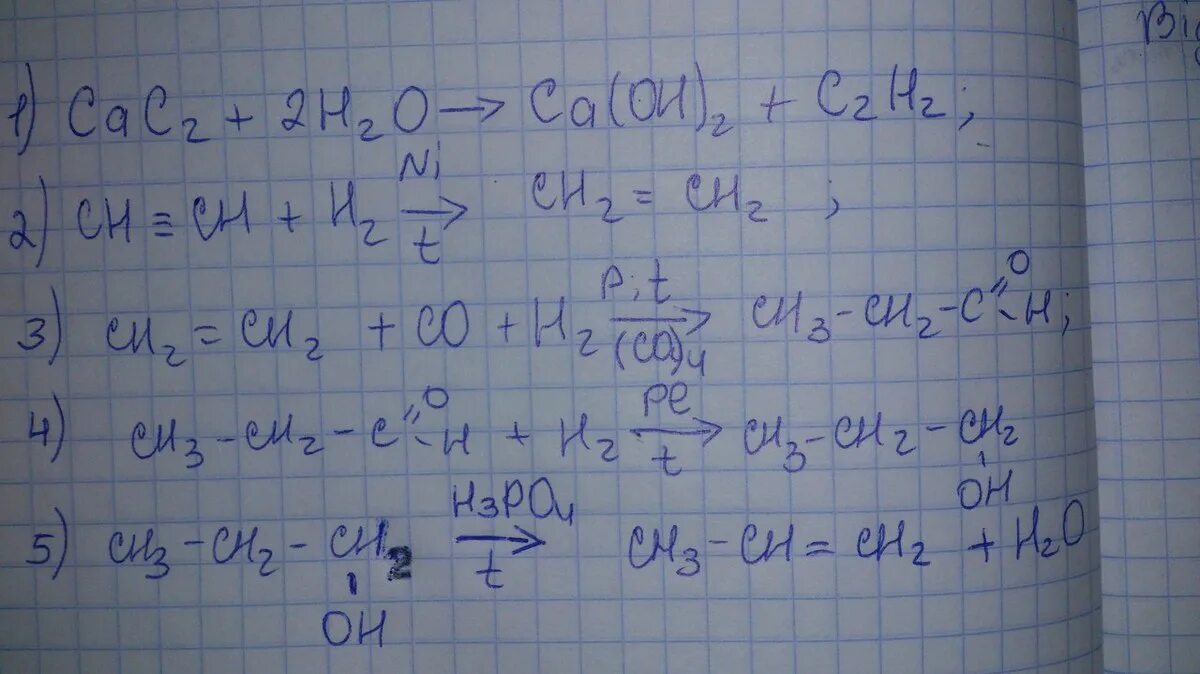 Ві
1) CaC₂ + 2H₂O → Ca(OH)₂ + C₂H₂;
2) CH ≡ CH + H₂ →(Ni, t) CH₂ = CH₂ ;
3) CH₂ = CH₂ + CO + H₂ →(P; t, (CO)₄) CH₃-CH₂-C(=O)-H;
4) CH₃-CH₂-C(=O)-H + H₂ →(Pt, t) CH₃-CH₂-CH₂-OH
5) CH₃-CH₂-CH₂-OH →(H₃PO₄, t) CH₃-CH=CH₂ + H₂O